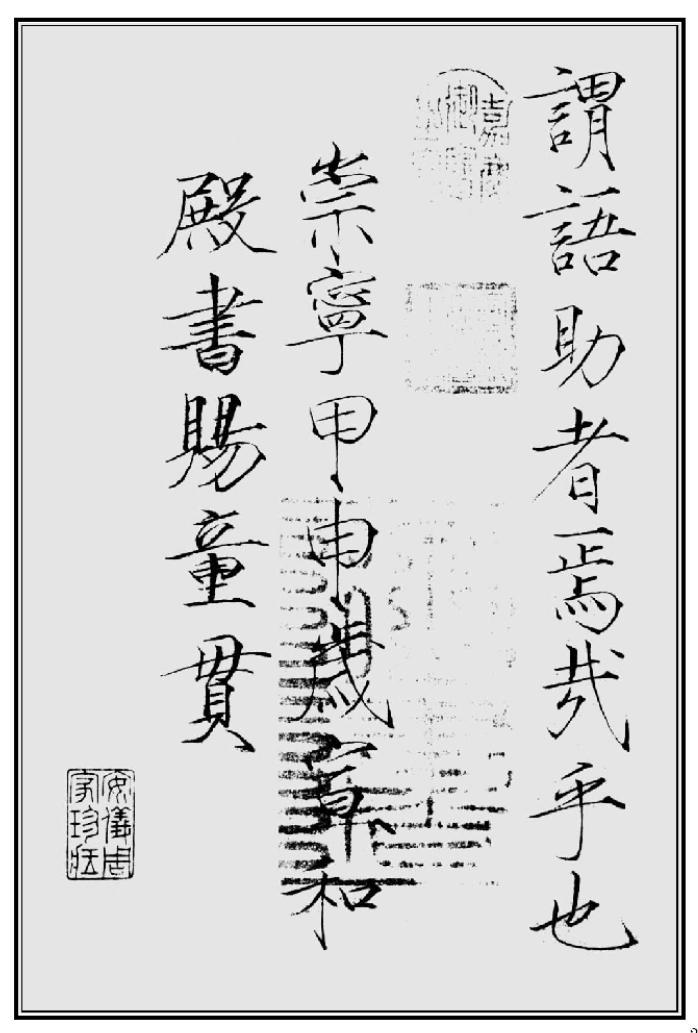 謂語助者焉哉乎也
崇寧甲申歲宣和
殿書賜童貫
安儀周
家珍藏